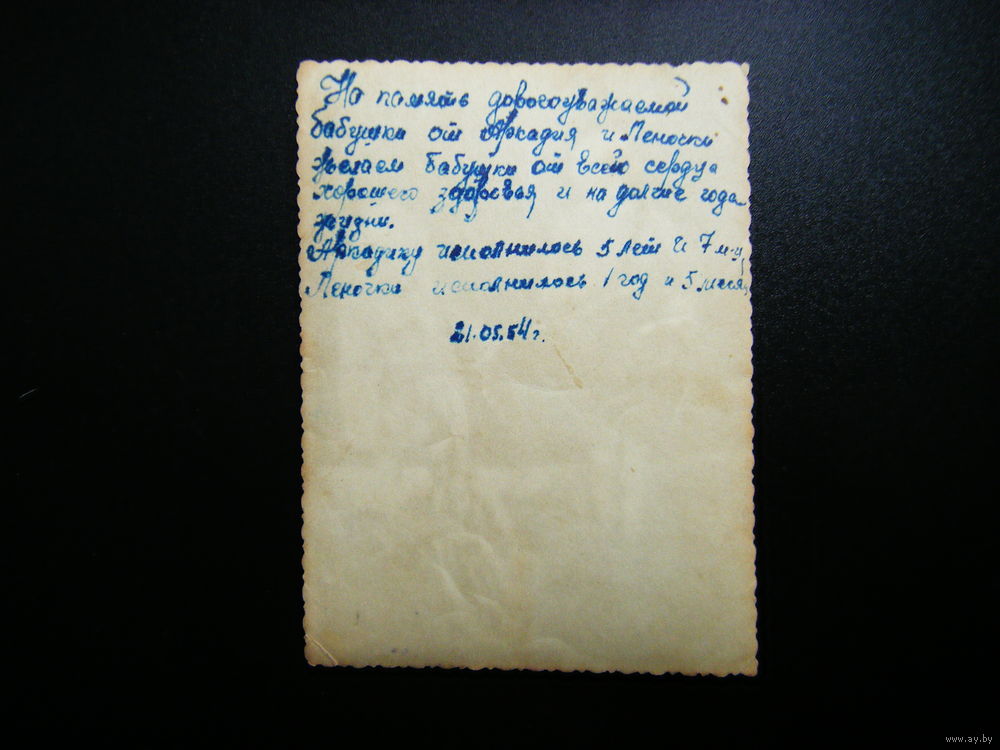 На память дорогоуважаемой
бабушки от Аркадия и Леночки
желаем бабушки от всего сердца
хорошего здоровья и на долгие года
жизни.
Аркадику исполнилось 5 лет и 7 м-ц
Леночки исполнилось 1 год и 5 меся
21.05.54 г.
www.ay.by